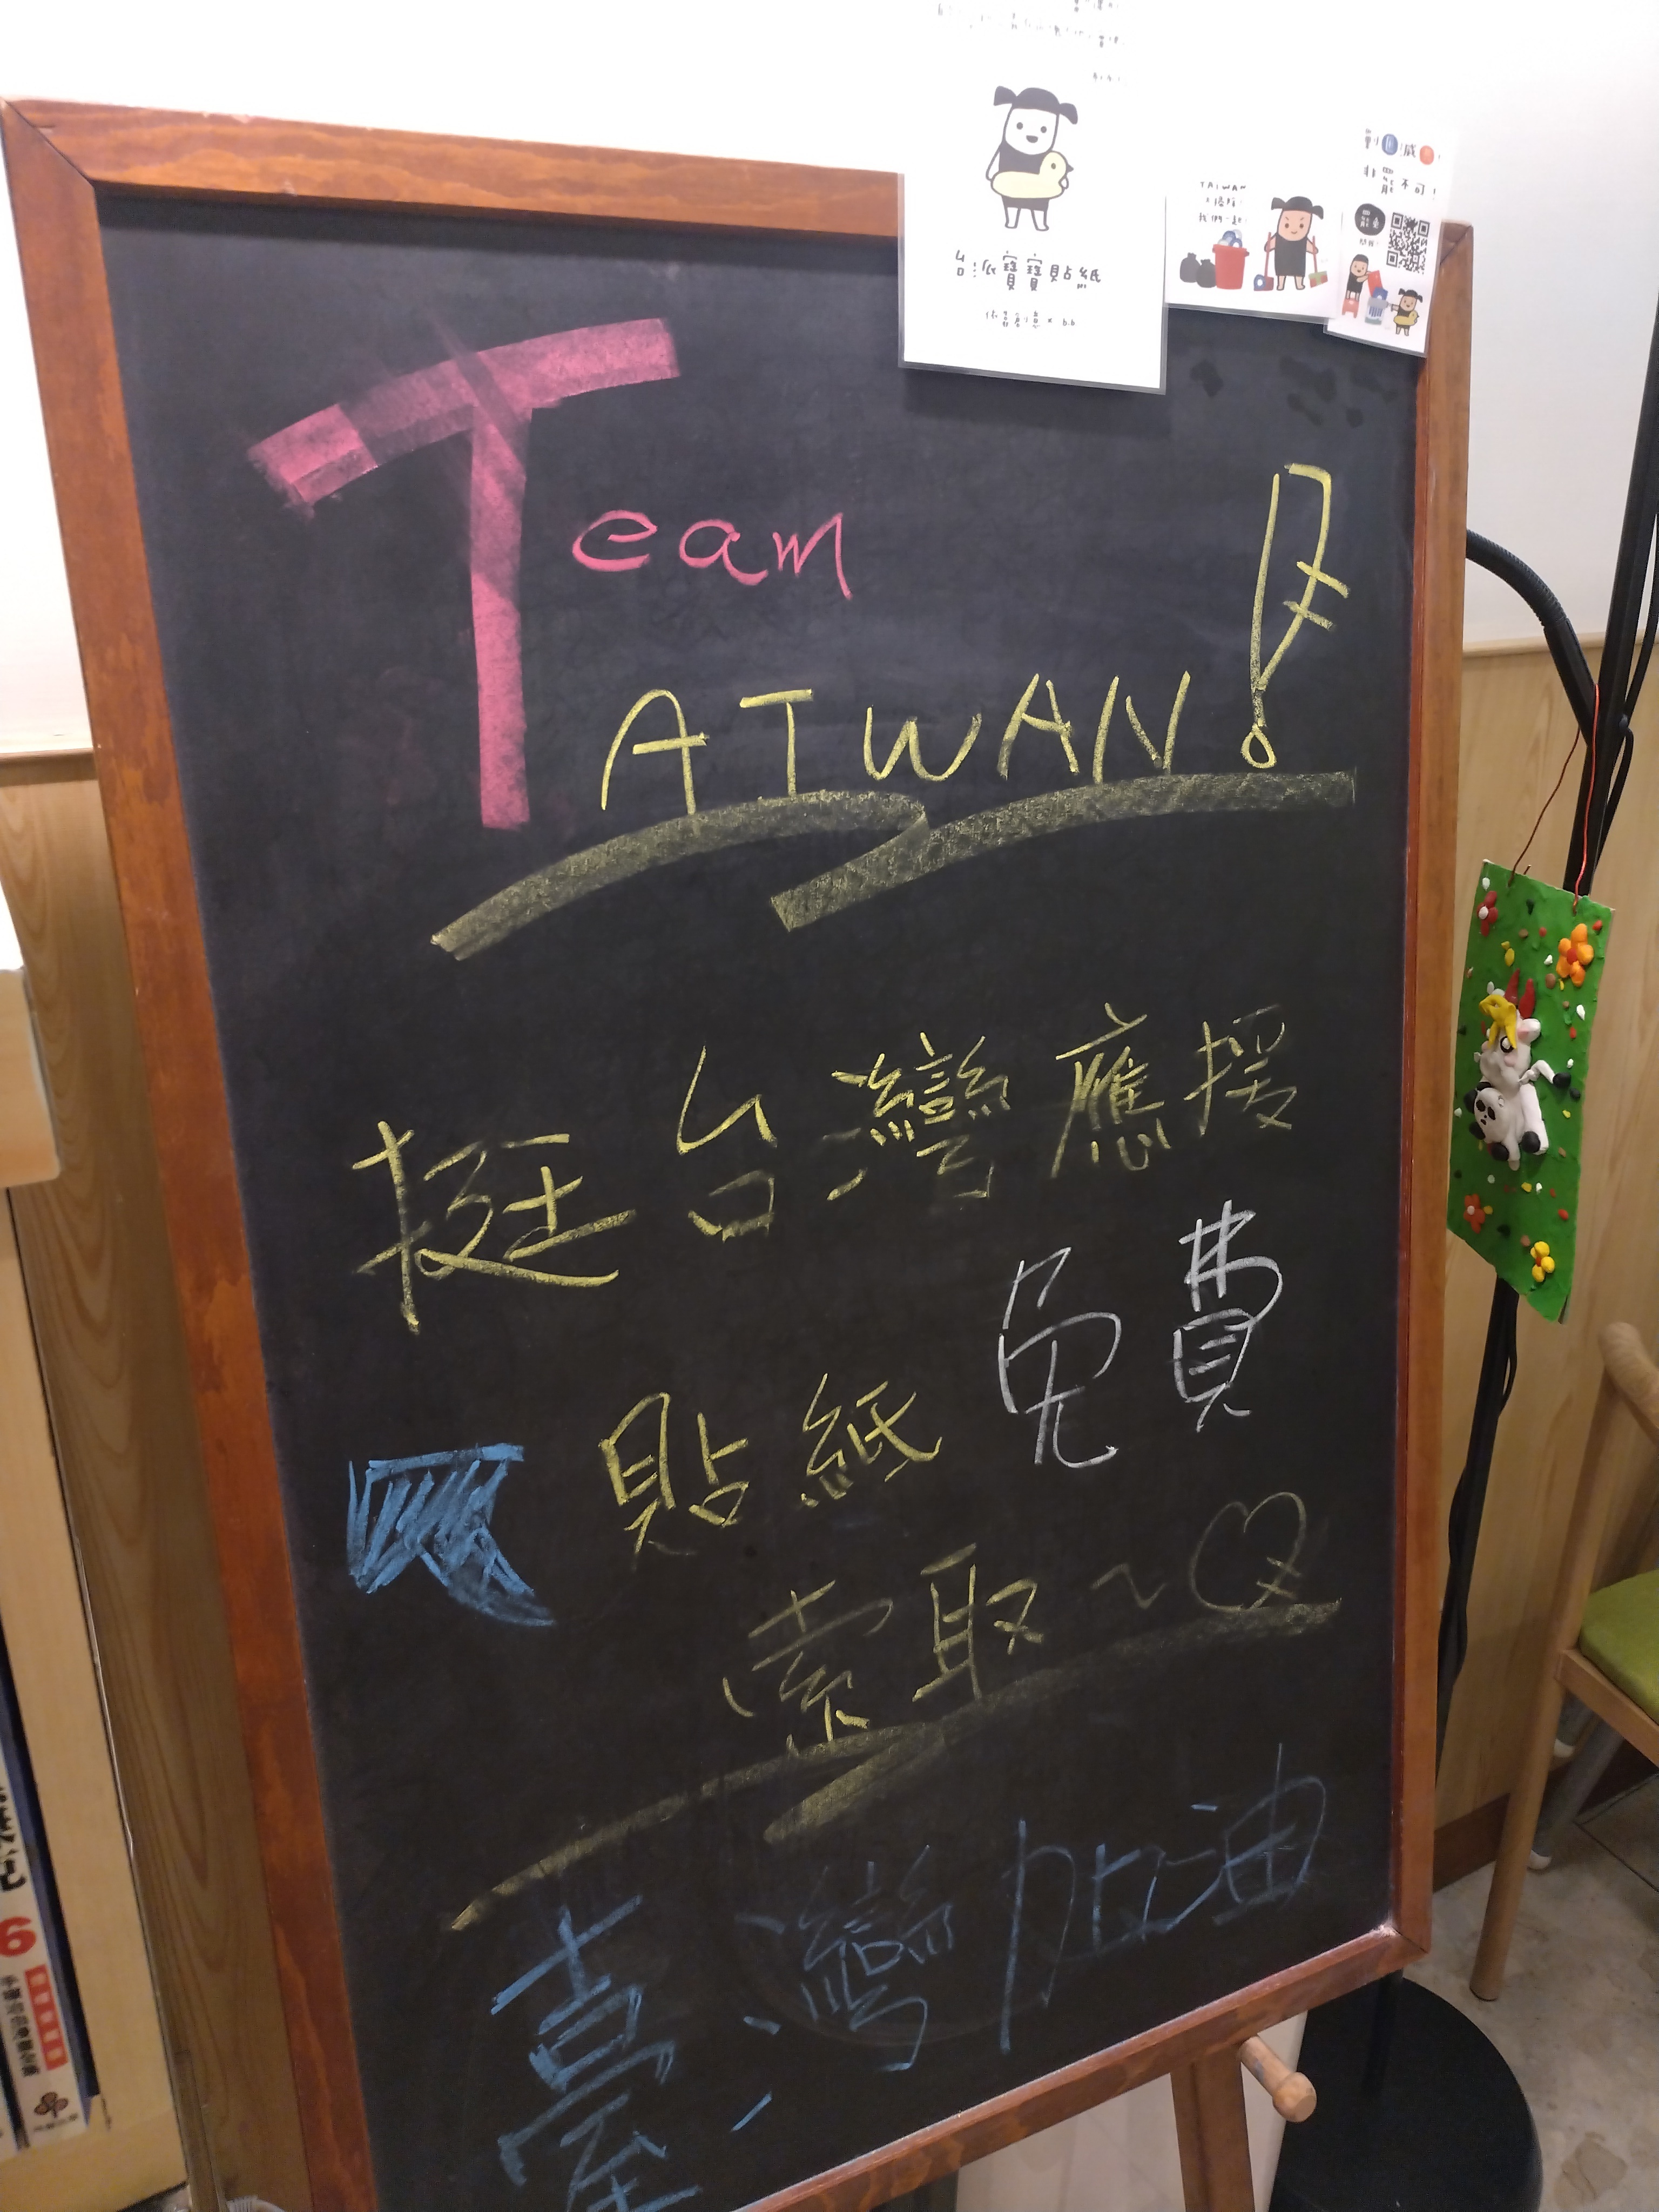 Team
TAIWAN!
挺台灣應援
貼紙 免費
索取~
臺灣加油
台派寶寶貼紙
TAIWAN
我們一起
非罷不可!
6